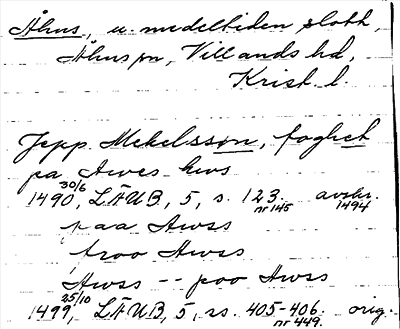 Åhus, u. medeltiden slott,
Åhus sn, Villands hd,
Krist. l.
Jepp Mekelsson, foghet
pa Awes hws
1490 30/6, LÄUB, 5, s. 123. avskr.
nr 145 1494
paa Awss
troo Awss
Awss -- poo Awss
1499 25/10, LÄUB, 5, ss. 405-406. orig.
nr 449.